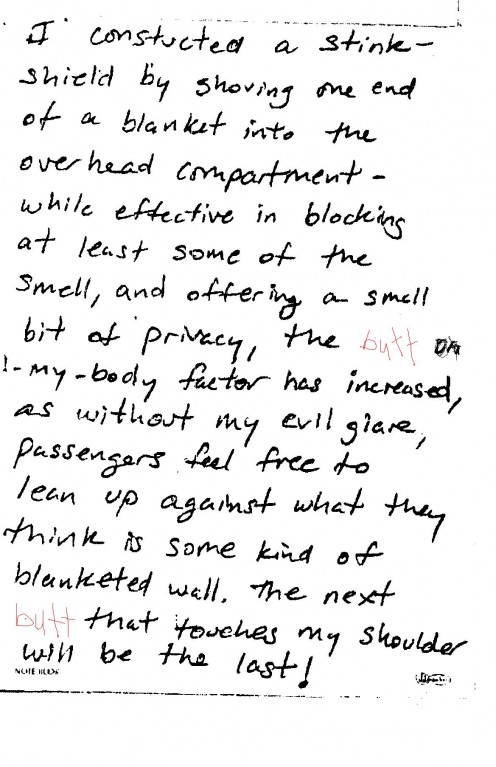 I constucted a stink-
shield by shoving one end
of a blanket into the
overhead compartment -
while effective in blocking
at least some of the
smell, and offering a small
bit of privacy, the butt on
!-my-body factor has increased,
as without my evil glare,
passengers feel free to
lean up against what they
think is some kind of
blanketed wall. The next
butt that touches my shoulder
will be the last!